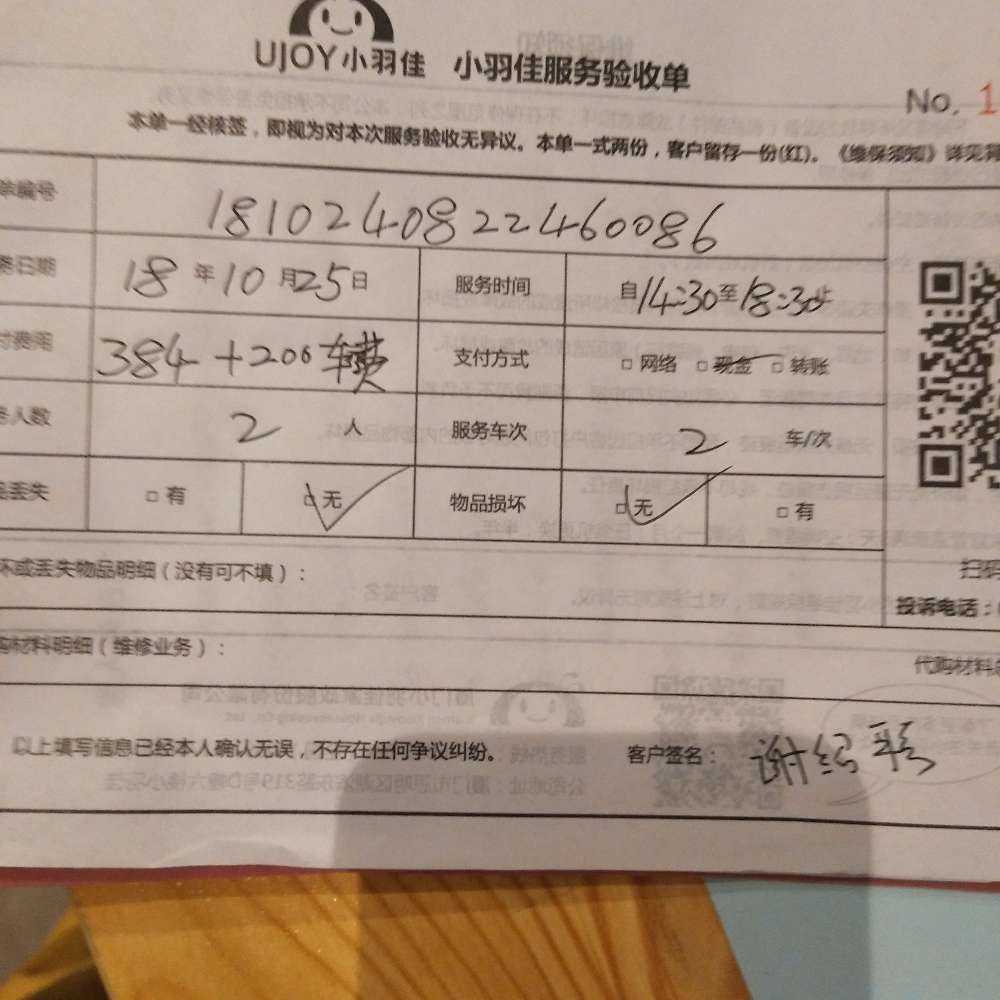 UJOY小羽佳 小羽佳服务验收单
No. 1
本单一经核签，即视为对本次服务验收无异议。本单一式两份，客户留存一份(红)。《维保须知》详见背
单编号 181024082246 0086
务日期 18 年 10 月 25 日 服务时间 自 14:30 至 18:30 止
付费用 384 + 200 车费 支付方式 □ 网络 □ 现金 □ 转账
人数 2 人 服务车次 2 车/次
品丢失 □ 有 □ 无 物品损坏 □ 无 □ 有
坏或丢失物品明细（没有可不填）：
扫码
投诉电话：
购材料明细（维修业务）：
代购材料总
以上填写信息已经本人确认无误，不存在任何争议纠纷。 客户签名：谢绍彩